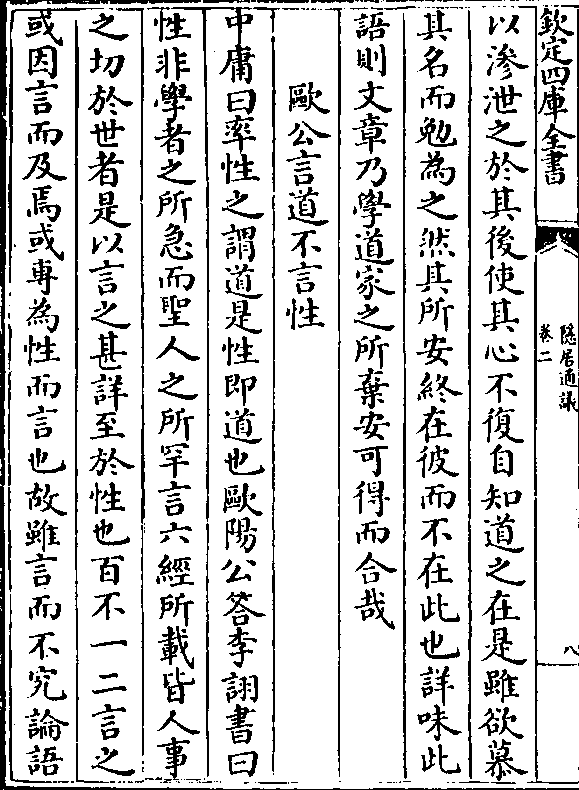 欽定四庫全書
隱居通議
卷二
八
以滲泄之於其後使其心不復自知道之在是雖欲慕
其名而勉為之然其所安終在彼而不在此也詳味此
語則文章乃學道家之所棄安可得而合哉
歐公言道不言性
中庸曰率性之謂道是性即道也歐陽公答李詡書曰
性非學者之所急而聖人之所罕言六經所載皆人事
之切於世者是以言之甚詳至於性也百不一二言之
或因言而及焉或專為性而言也故雖言而不究論語